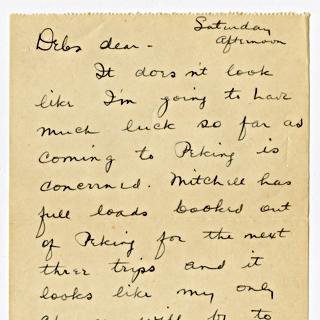 Saturday
Afternoon
Debs dear -
It does n't look
like I'm going to have
much luck so far as
coming to Peking is
concerned. Mitchell has
full loads booked out
of Peking for the next
three trips and it
looks like my only
will be to